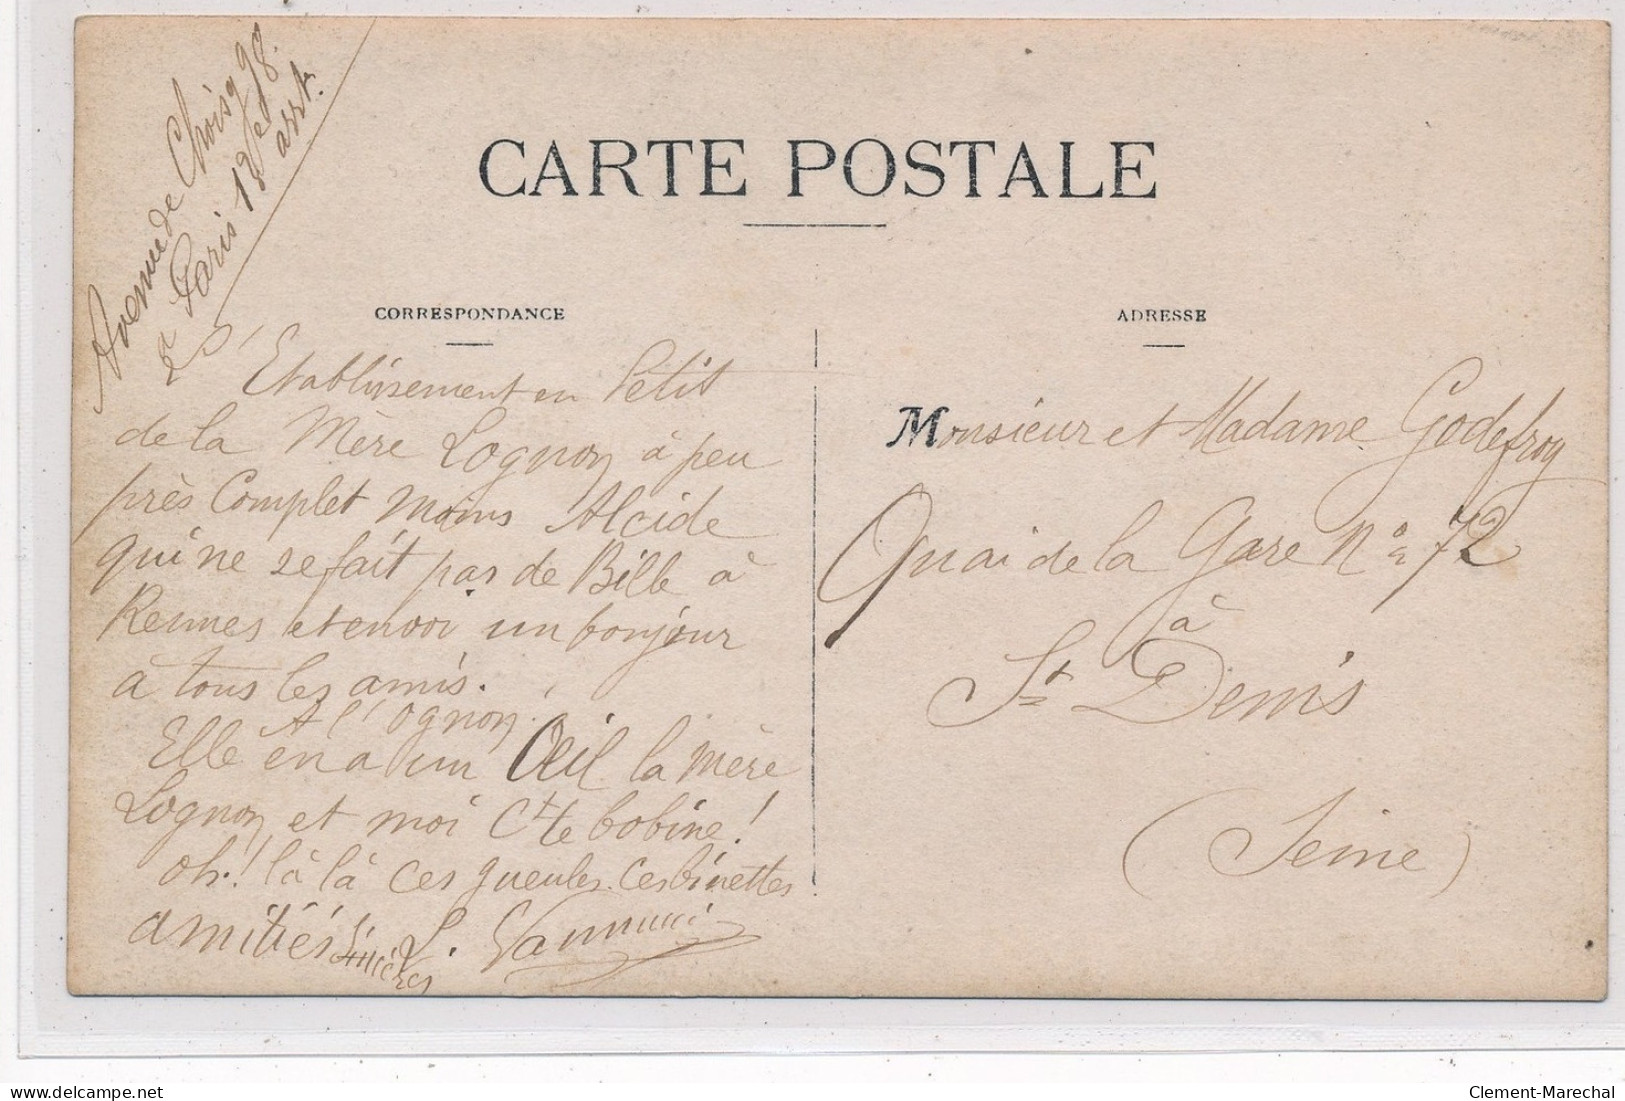 Avenue de Choisy 98
à Paris 13e arrt.
CARTE POSTALE
CORRESPONDANCE
L'Etablissement en Petit
de la Mère Lognon à peu
près Complet moins Alcide
qui ne se fait pas de Bille à
Rennes et envoi un bonjour
à tous les amis.
A l'ognon
Elle en a un Œil la mère
Lognon et moi Cte bobine!
oh! là là ces gueules ces binettes
amitiés sincères L.
ADRESSE
Monsieur et Madame Godefroy
Quai de la Gare No 72
à
St Denis
(Seine)
Clement-Marechal